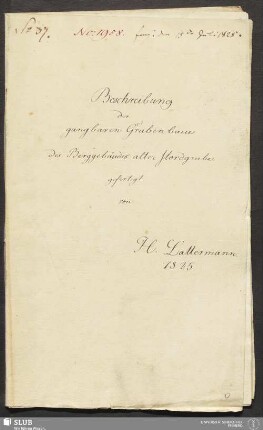 No 37. No: 1908.
Beschreibung
der
gangbaren Grubenbaue
des Berggebäudes alte Mordgrube
gefertigt
von
H. Lattermann
1825
SLUB